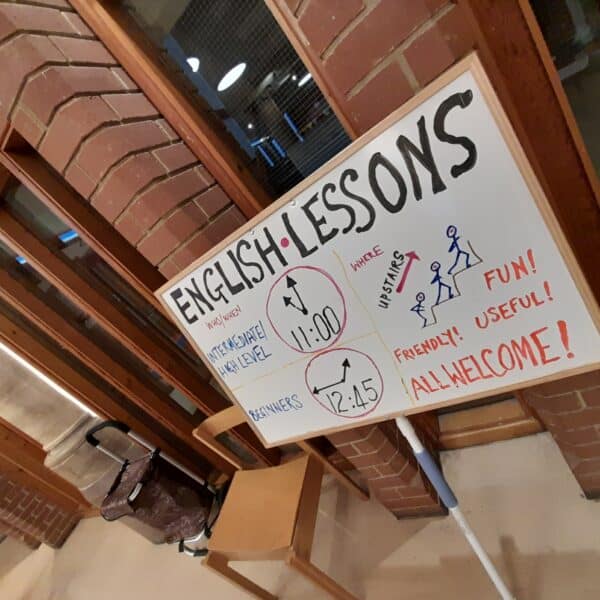 ENGLISH • LESSONS
WHO/WHEN
INTERMEDIATE/
HIGH LEVEL
11:00
BEGINNERS
12:45
WHERE
UPSTAIRS
FRIENDLY! USEFUL! FUN!
ALL WELCOME!